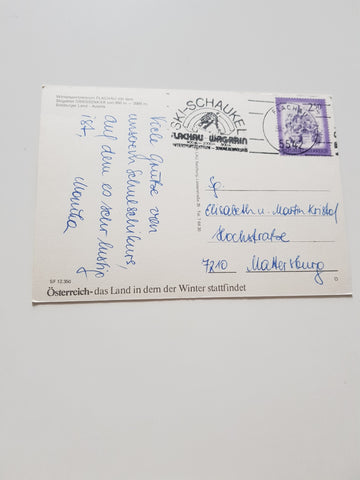 Wintersportzentrum FLACHAU mit dem
Skigebiet GRIESSENKAR von 950 m — 2000 m
Salzburger Land - Austria
Viele Grüße von
unserem Schulschikurs,
auf dem es sehr lustig
ist,
Monika
SKI-SCHAUKEL
FLACHAU WAGRAIN
5542
2.50
Sg.
Elisabeth u. Martin Kristof
Hochstraße
7210 Mattersburg
SF 12.350
Österreich - das Land in dem der Winter stattfindet